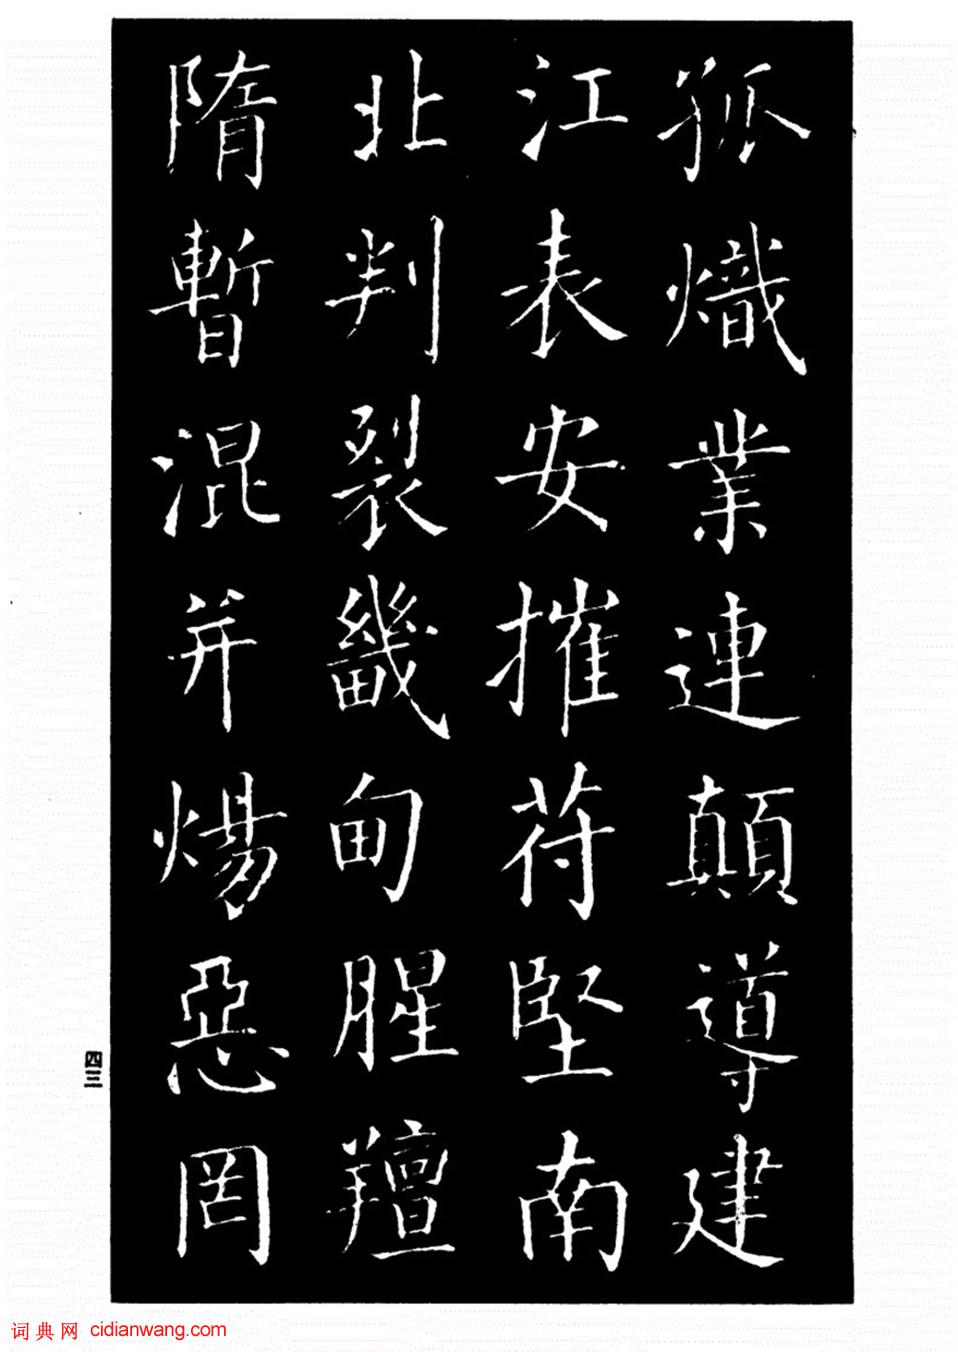 孤熾業連顛導建
江表安摧苻堅南
北判裂畿甸腥羶
隋暫混并煬惡罔
四三
词典网 cidianwang.com